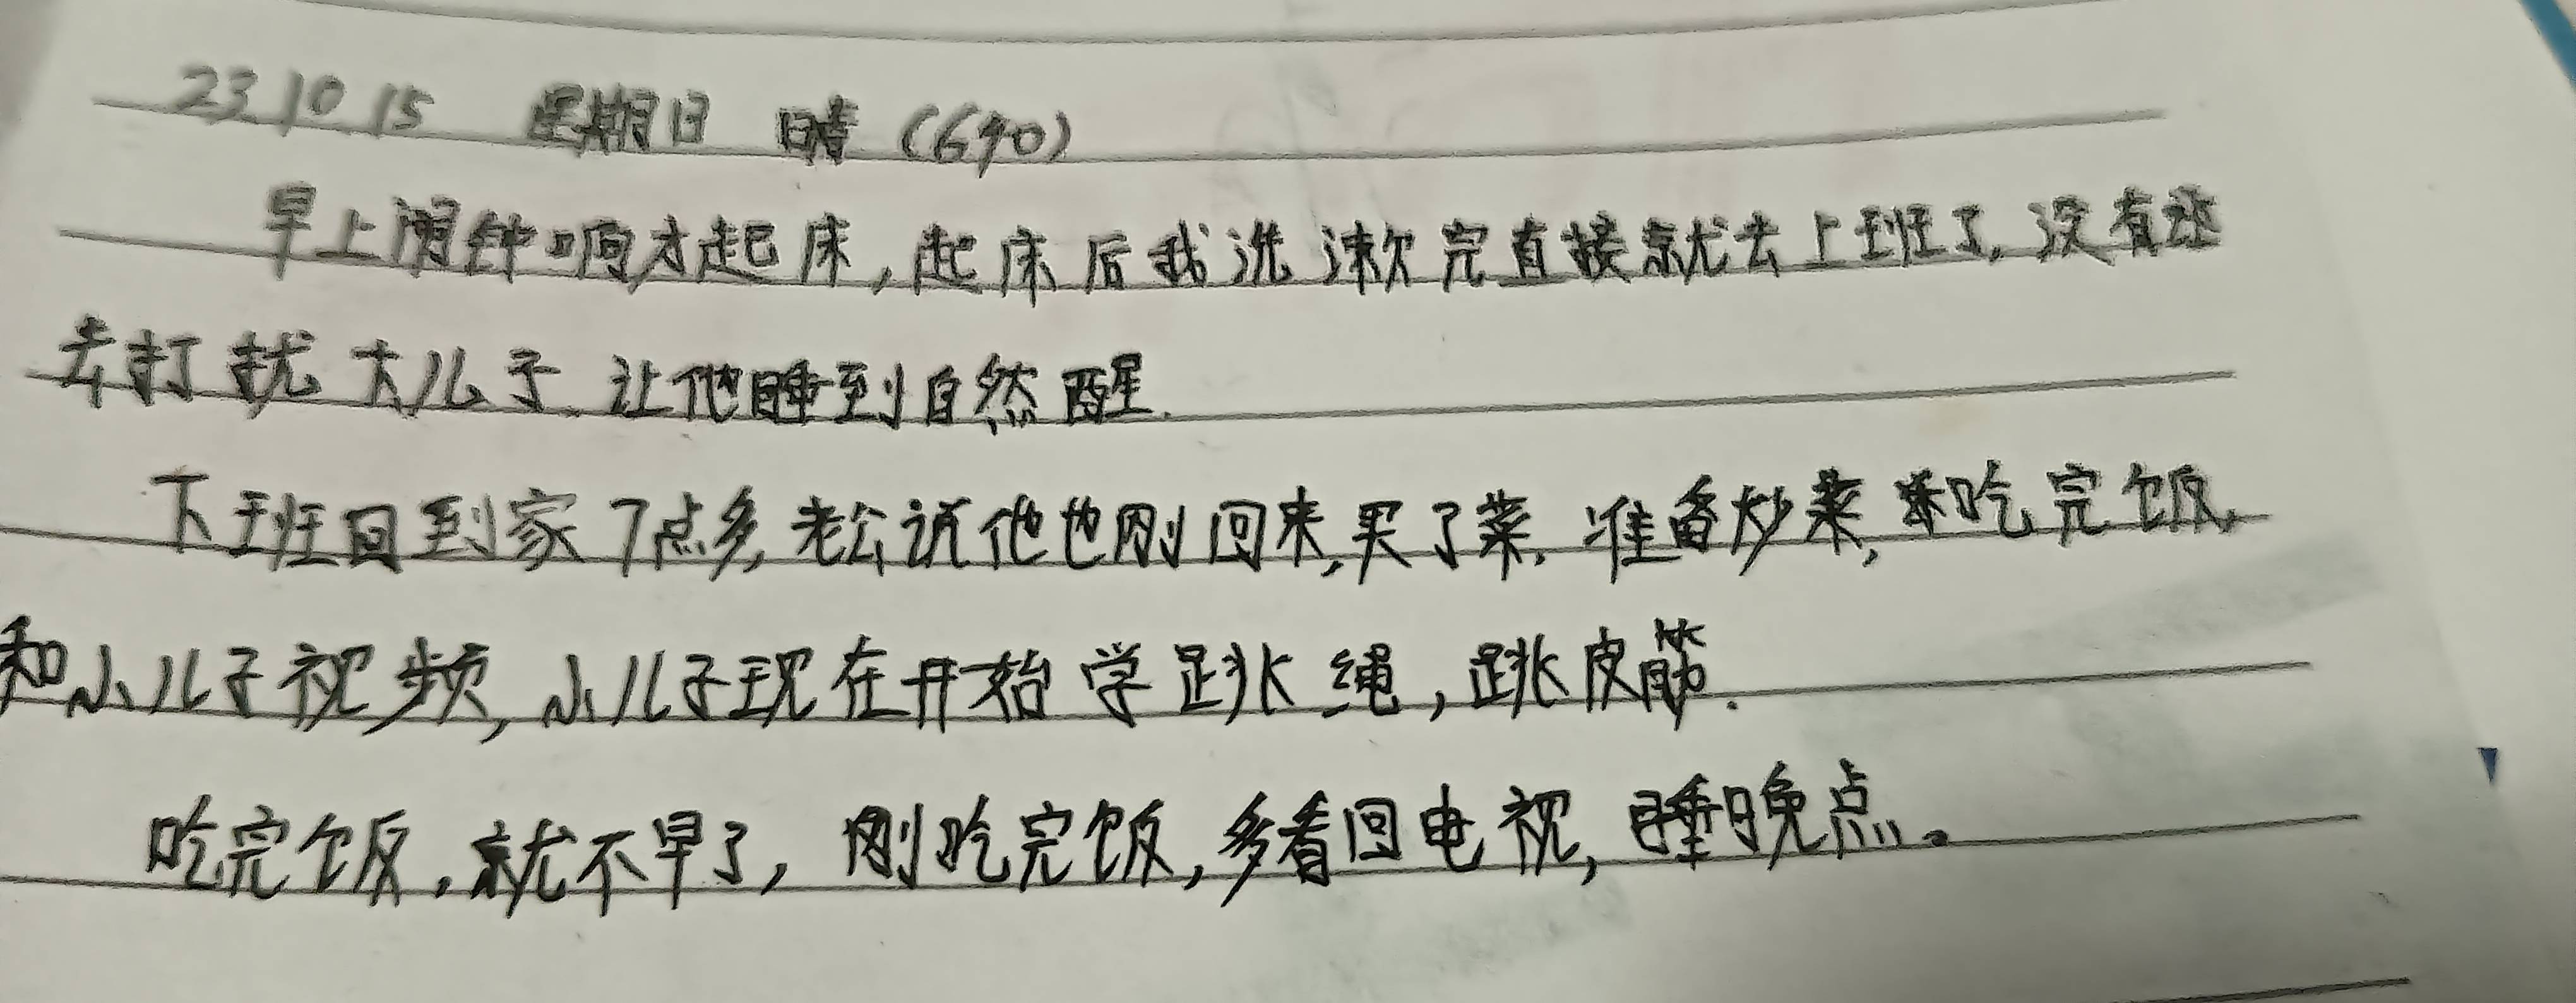 23.10.15 星期日 晴 (690)
早上闹钟响才起床,起床后我洗漱完直接就去上班了,没有
去打扰大儿子.让他睡到自然醒.
下班回到家7点多,老公说他也刚回来,买了菜.准备炒菜,吃完饭,
和小儿子视频,小儿子现在开始学跳绳,跳皮筋.
吃完饭,就不早了,刚吃完饭,多看回电视,睡晚点。